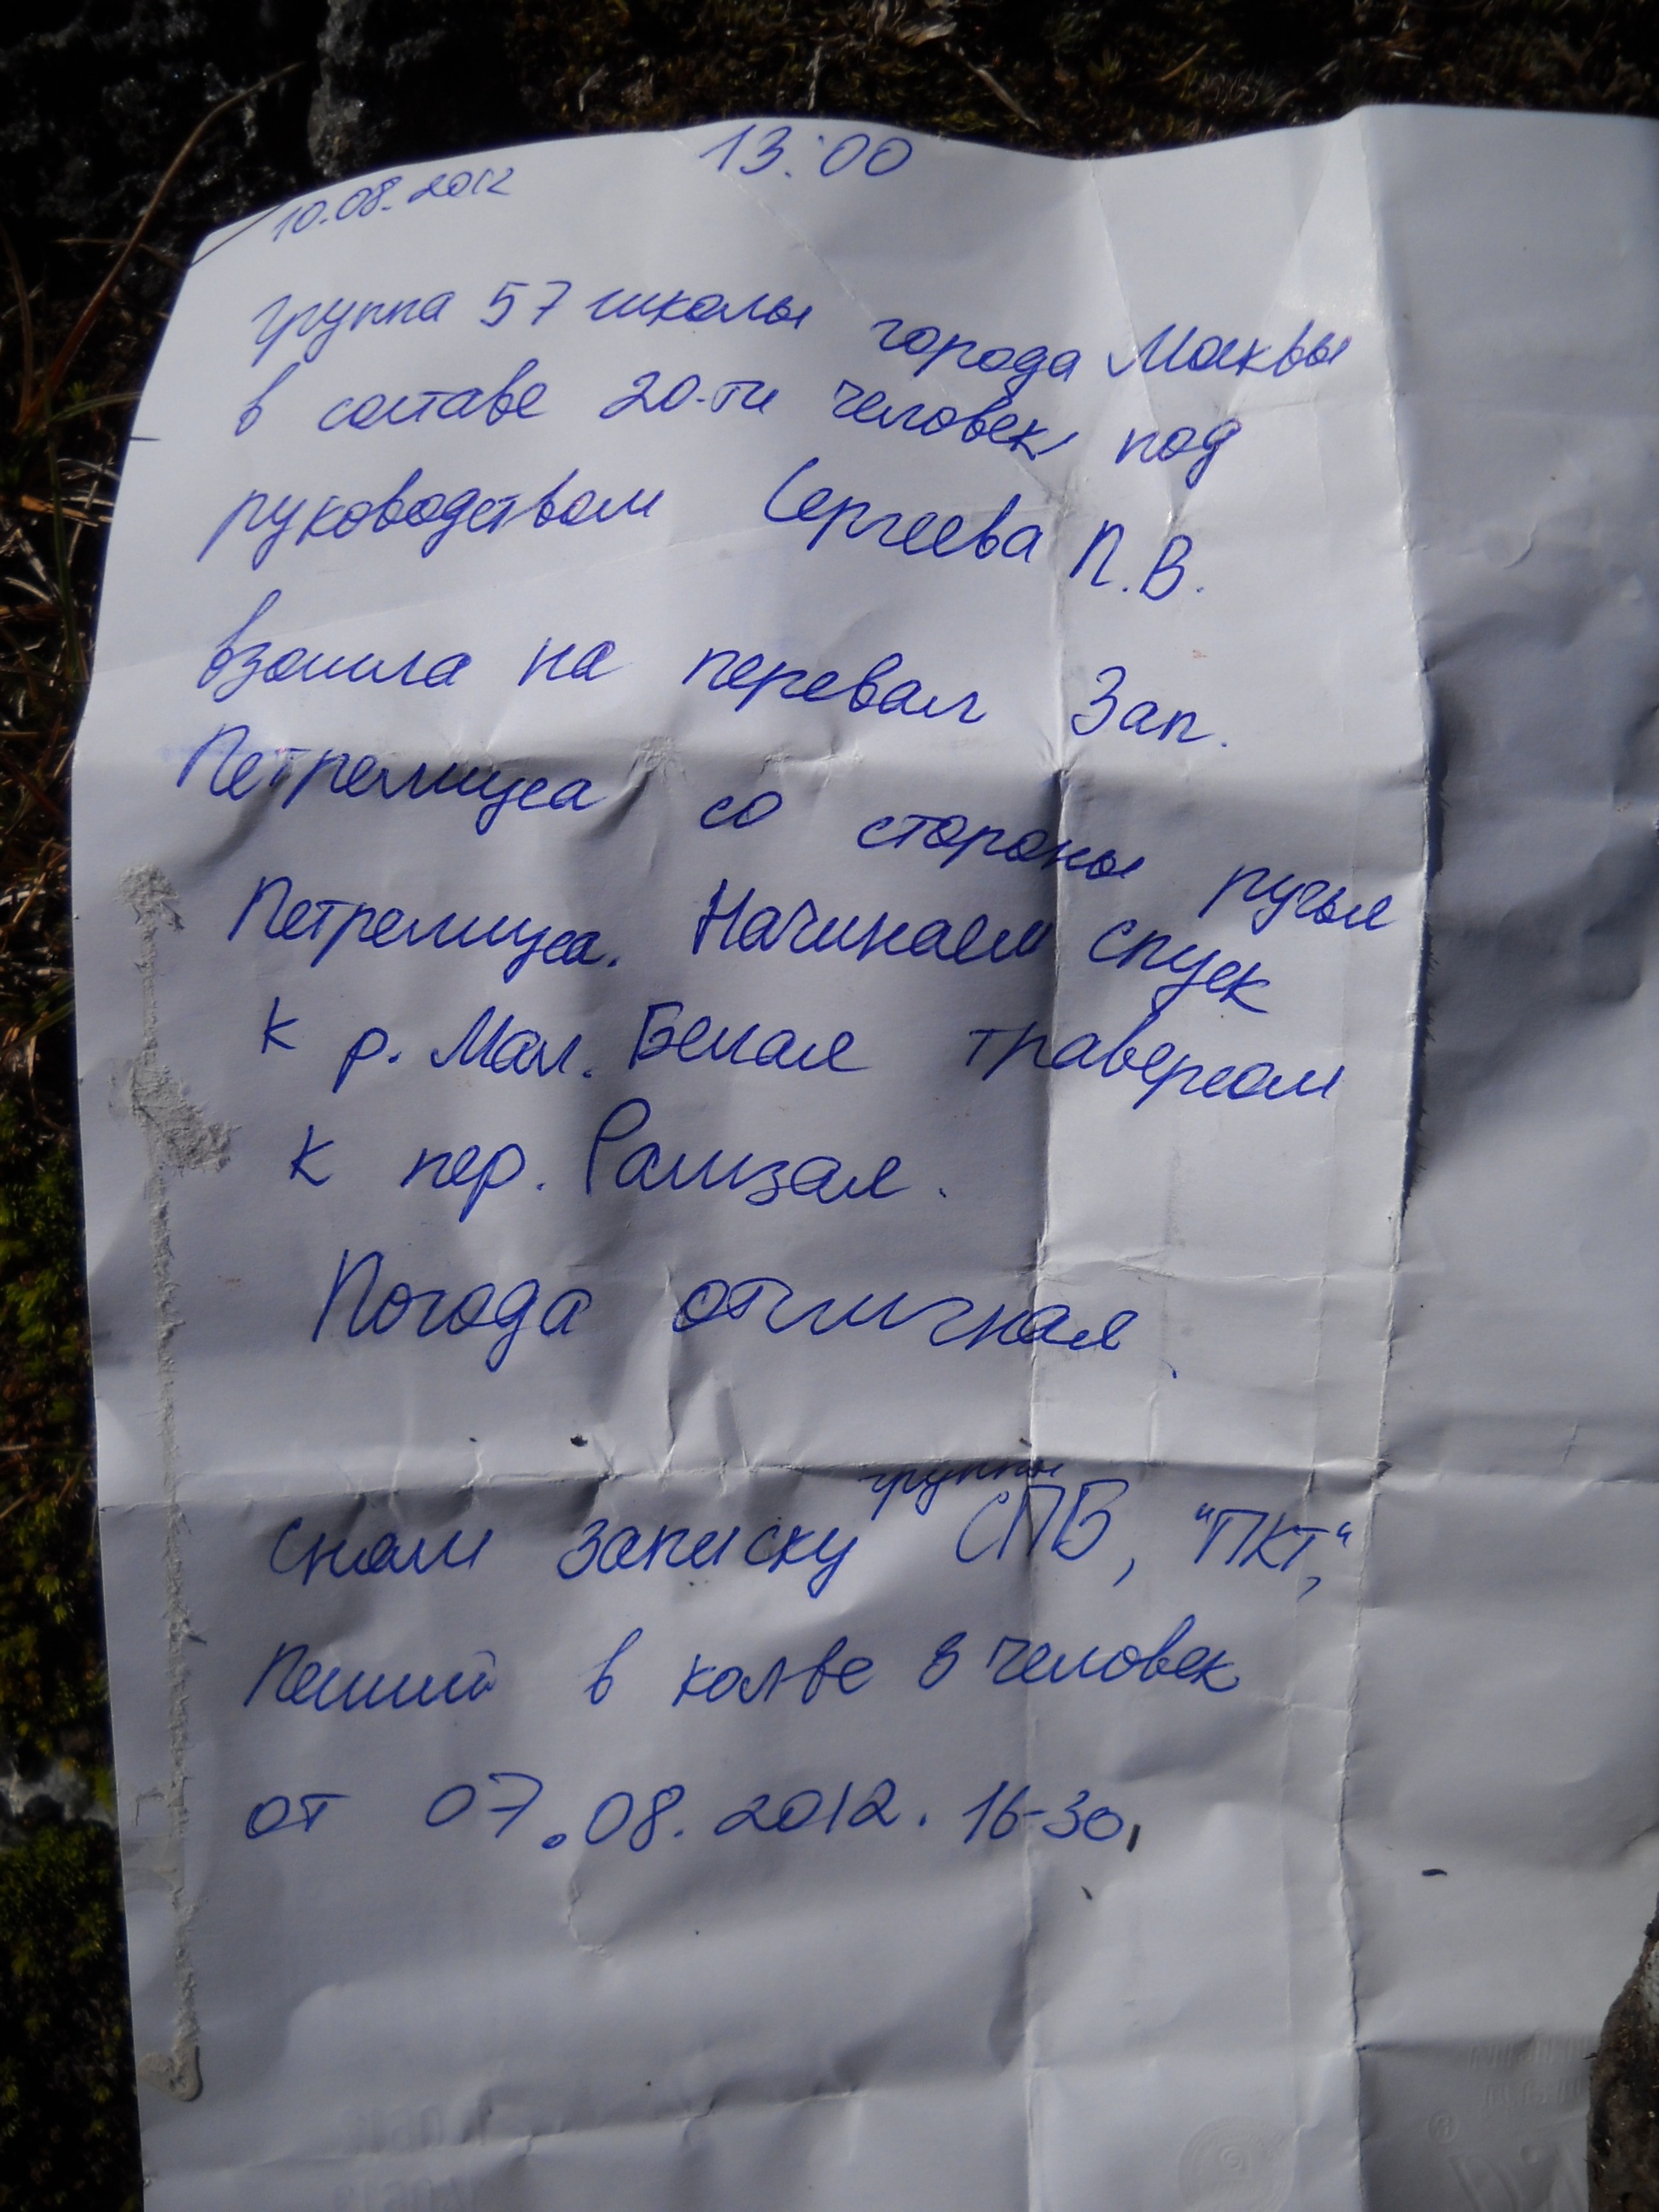 10.08.2012 13:00
группа 57 школы города Москвы
в составе 20-ти человек под
руководством Сергеева П.В.
взошла на перевал Зап.
Петрелиуса со стороны ручья
Петрелиуса. Начинаем спуск
к р. Мал. Белая траверсом
к пер. Рамзая.
Погода отличная.
группы
Сняли записку СПВ, "ПКТ",
Пеший в кол-ве 8 человек
от 07.08.2012. 16-30,